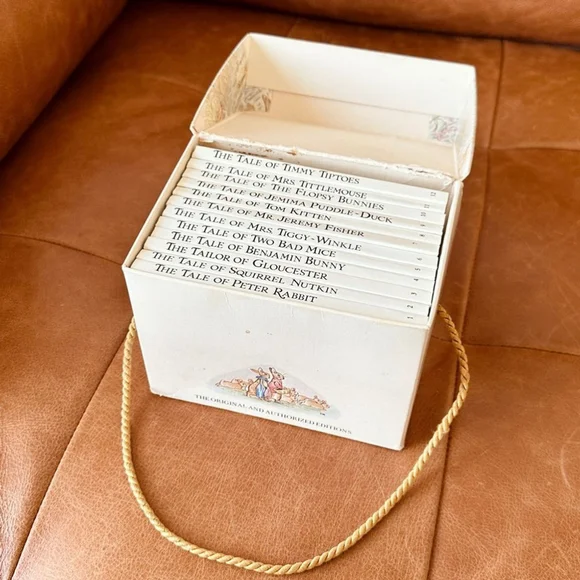 THE TALE OF TIMMY TIPTOES 12
THE TALE OF MRS TITTLEMOUSE 11
THE TALE OF THE FLOPSY BUNNIES 10
THE TALE OF JEMIMA PUDDLE-DUCK 9
THE TALE OF TOM KITTEN 8
THE TALE OF MR JEREMY FISHER 7
THE TALE OF MRS TIGGY-WINKLE 6
THE TALE OF TWO BAD MICE 5
THE TALE OF BENJAMIN BUNNY 4
THE TAILOR OF GLOUCESTER 3
THE TALE OF SQUIRREL NUTKIN 2
THE TALE OF PETER RABBIT 1
THE ORIGINAL AND AUTHORIZED EDITIONS